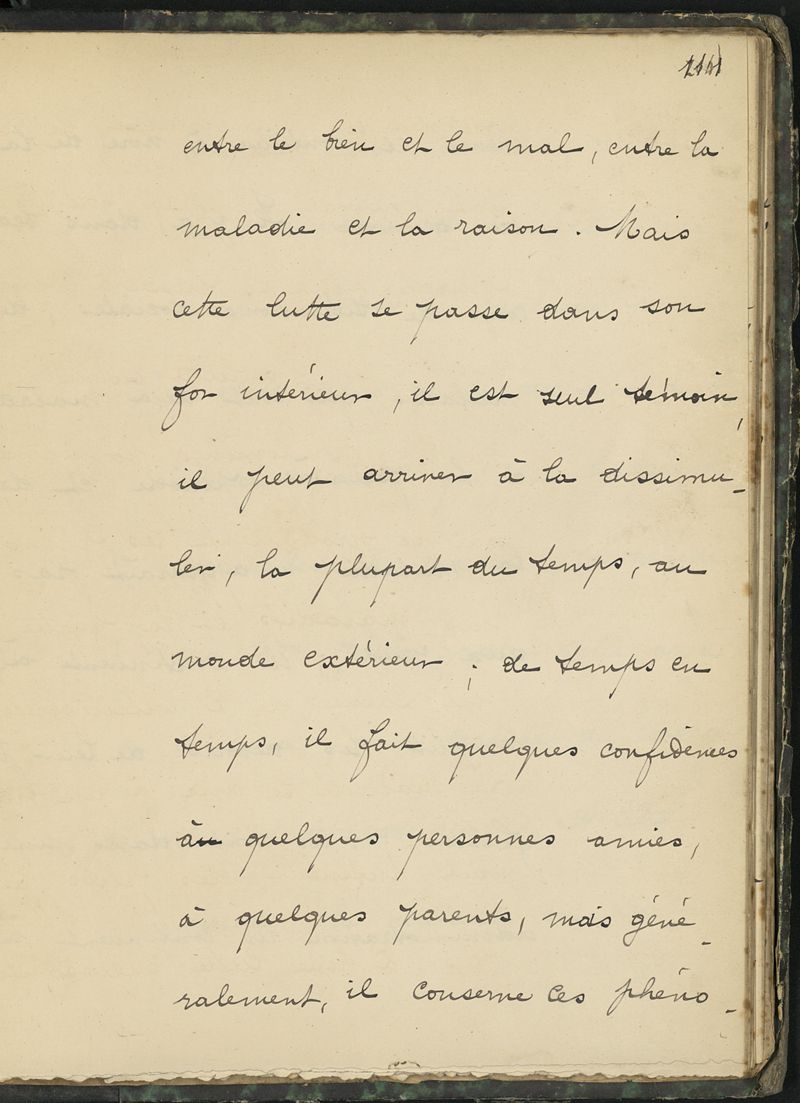 entre le bien et le mal, entre la
maladie et la raison. Mais
cette lutte se passe dans son
for intérieur, il est seul témoin,
il peut arriver à la dissimu-
ler, la plupart du temps, au
monde extérieur ; de temps en
temps, il fait quelques confidences
à quelques personnes amies,
à quelques parents, mais géné-
ralement, il conserve ces phéno-